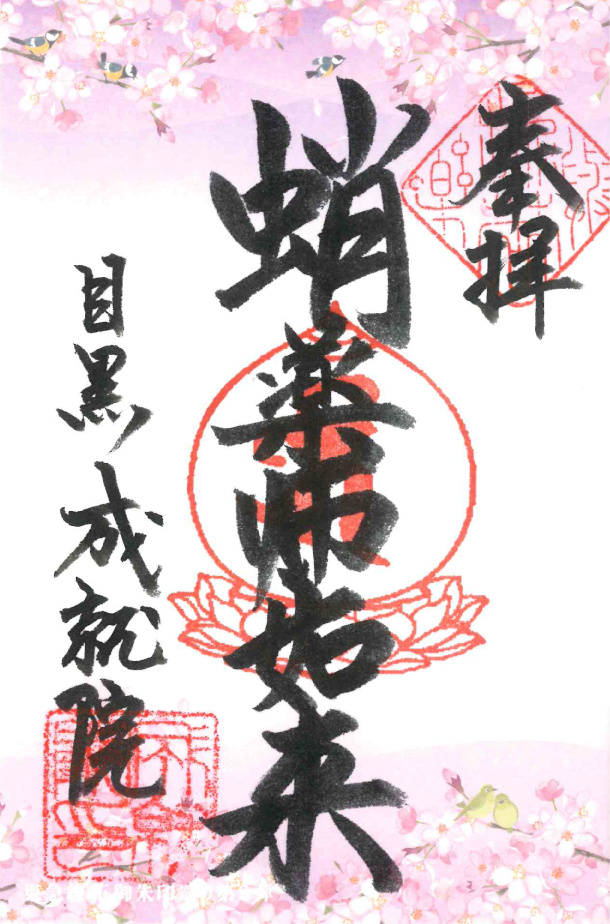 奉拝
蛸薬師如来
目黒成就院